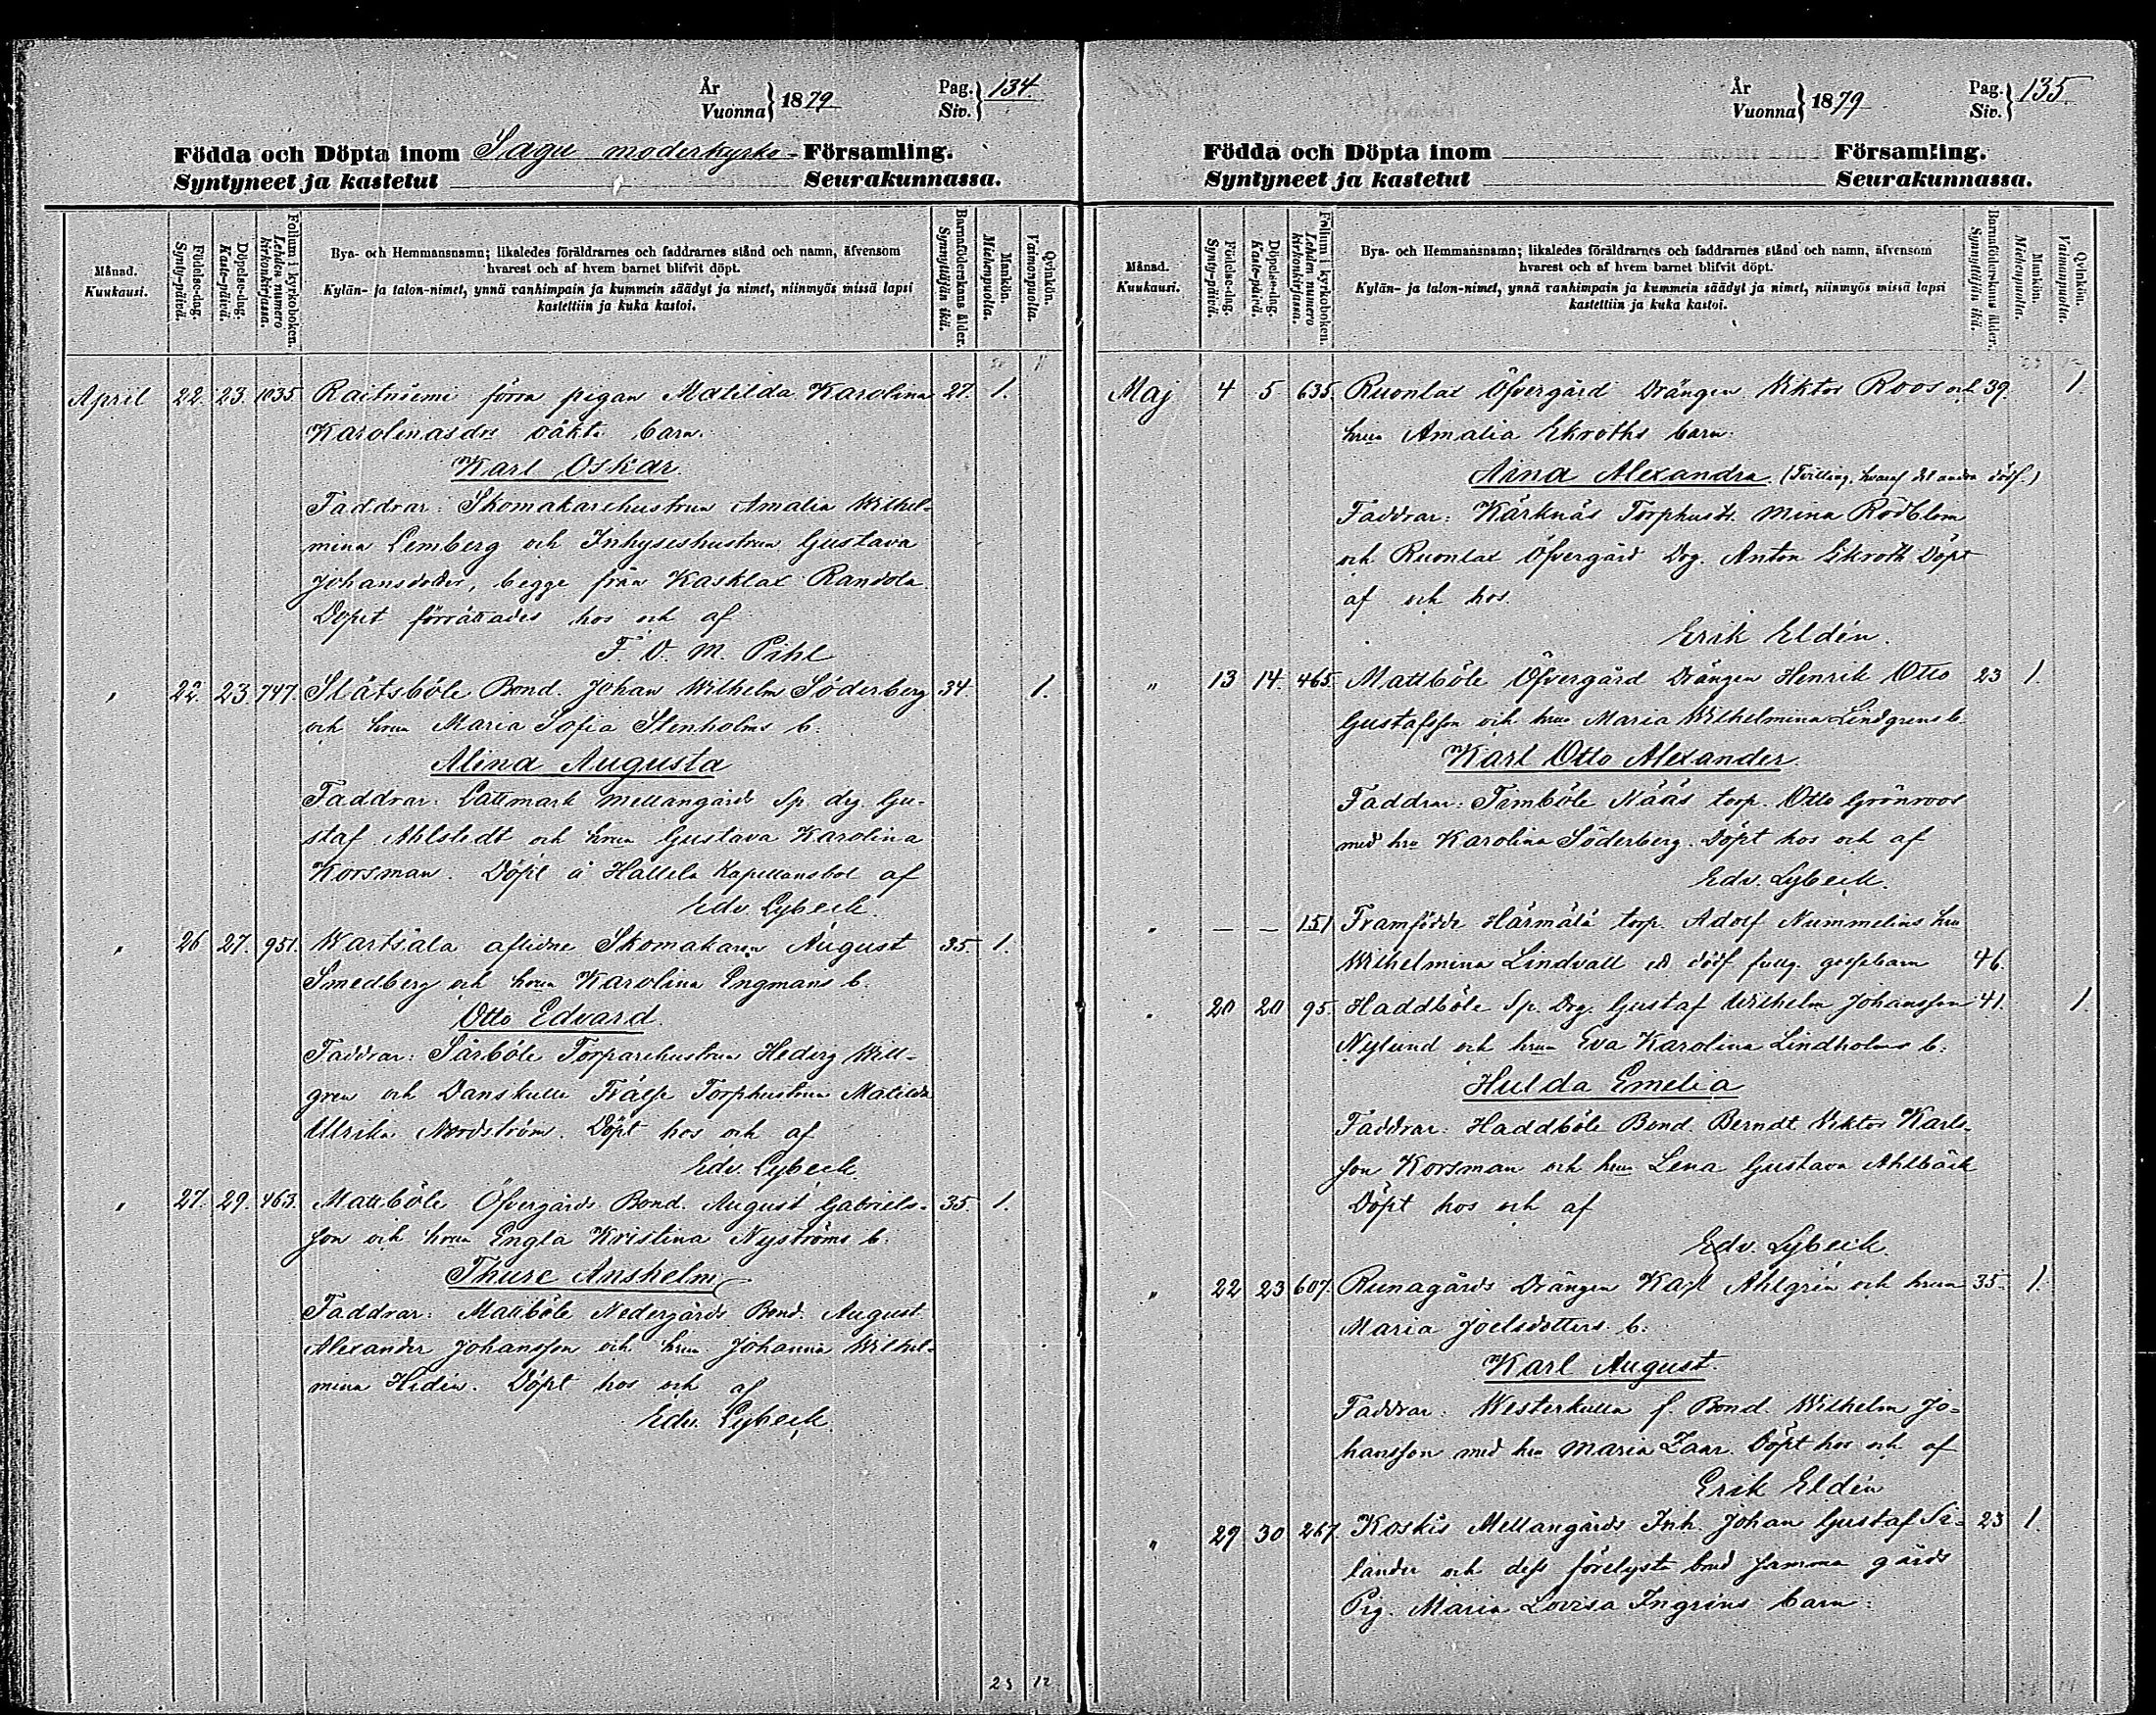 År
Vuonna } 1879
Pag.
Siv. } 134.
Födda och Döpta inom Sagu moderkyrko- Församling.
Syntyneet ja kastetut Seurakunnassa.
Månad.
Kuukausi.
Födelse-dag.
Synty-päivä.
Döpelse-dag.
Kaste-päivä.
Folium i kyrkoboken.
Lehden numero kirkonkirjassa.
Bya- och Hemmansnamn; likaledes föräldrarnes och faddrarnes stånd och namn, äfvensom
hvarest och af hvem barnet blifvit döpt.
Kylän- ja talon-nimet, ynnä vanhimpain ja kummein säädyt ja nimet, niinmyös missä lapsi
kastettiin ja kuka kastoi.
Barnaföderskans ålder.
Synnyttäjän ikä.
Mankön.
Miehenpuolia.
Qvinkön.
Vaimonpuolia.
April 22. 23. 1035 Raitniemi förra pigan Matilda Karolina 27. 1.
Karolinasdrs oäkta barn.
Karl Oskar
Faddrar: Skomakarehustrun Amalia Wilhel-
mina Lemberg och Inhyseshustrun Gustava
Johansdotter, begge från Kasklax Randola.
Dopet förrättades hos och af
F. O. M. Pihl
" 22. 23. 747. Slätsböle Bond. Johan Wilhelm Söderberg 34 1.
och hrun Maria Sofia Stenholms b.
Alina Augusta
Faddrar: Lattmark Mellangårds Sp. drg Gu-
staf Ahlstedt och hrun Gustava Karolina
Korsman. Döpt å Hallela Kapellansbol af
Edv. Lybeck.
" 26 27. 951. Kartsala aflidne Skomakaren August 35. 1.
Smedberg och hrun Karolina Engmans b.
Otto Edvard.
Faddrar: Särböle Torparehustrun Hedvig Will-
gren och Danskulla Frälse Torphustrun Matilda
Ulrika Nordström. Döpt hos och af
Edv. Lybeck.
" 27. 29. 463. Mattböle Öfvergårds Bond. August Gabriels- 35. 1.
son och hrun Engla Kristina Nyströms b.
Thure Anshelm
Faddrar: Mattböle Nedergårds Bond. August
Alexander Johansson och hrun Johanna Wilhel-
mina Hedin. Döpt hos och af
Edv. Lybeck.
23 12
År
Vuonna } 1879
Pag.
Siv. } 135.
Födda och Döpta inom Församling.
Syntyneet ja kastetut Seurakunnassa.
Månad.
Kuukausi.
Födelse-dag.
Synty-päivä.
Döpelse-dag.
Kaste-päivä.
Folium i kyrkoboken.
Lehden numero kirkonkirjassa.
Bya- och Hemmansnamn; likaledes föräldrarnes och faddrarnes stånd och namn, äfvensom
hvarest och af hvem barnet blifvit döpt.
Kylän- ja talon-nimet, ynnä vanhimpain ja kummein säädyt ja nimet, niinmyös missä lapsi
kastettiin ja kuka kastoi.
Barnaföderskans ålder.
Synnyttäjän ikä.
Mankön.
Miehenpuolia.
Qvinkön.
Vaimonpuolia.
Maj 4 5 635. Ruonlax Öfvergård Drängen Viktor Roos och 39. 1.
hrun Amalia Ekroths barn:
Aina Alexandra. (Tvilling, hvaraf det andra dödf.)
Faddrar: Kärknäs Torphustr. Mina Rödblom
och Ruonlax Öfvergård Drg. Anton Ekroth. Döpt
af och hos.
Erik Eldén.
" 13 14. 465. Mattböle Öfvergård Drängen Henrik Otto 23 1.
Gustafsson och hrun Maria Wilhelmina Lindgrens b.
Karl Otto Alexander
Faddrar: Timböle Nääs torp. Otto Grönroos
med hru Karolina Söderberg. Döpt hos och af
Edv. Lybeck.
" — — 151 Framfödde Härmälä torp. Adolf Nummelins hru
Wilhelmina Lindvall ett dödf. fullg. gossebarn 46.
" 20 20 95. Haddböle Sp. Drg. Gustaf Wilhelm Johansson 41. 1.
Nylund och hrun Eva Karolina Lindholms b:
Hulda Emelia
Faddrar: Haddböle Bond. Berndt Viktor Karls-
son Korsman och hrun Lena Gustava Ahlbäck
Döpt hos och af
Edv. Lybeck.
" 22 23 607. Runagårds Drängen Karl Ahlgrén och hrun 35. 1.
Maria Joelsdotters b:
Karl August.
Faddrar: Westerkulla f. Bond. Wilhelm Jo-
hansson med hru Maria Zaar. Döpt hos och af
Erik Eldén
" 29 30 267. Koskis Mellangårds Inh. Johan Gustaf Se- 23 1.
lander och dess förelysta brud samma gårds
Pig. Maria Lovisa Ingréns barn: